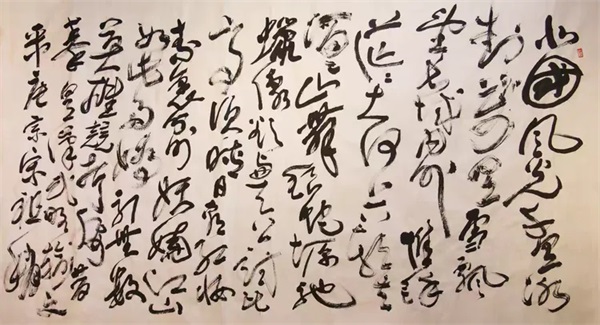 北國风光千里冰
封万里雪飘
望长城内外惟余
莽々大河上下顿失
滔々山舞银蛇原驰
蜡象欲与天公试比
高须晴日看红妆
素裹分外妖娆江山
如此多娇引无数
英雄竞折腰惜
秦皇汉武略输文
采唐宗宋祖稍